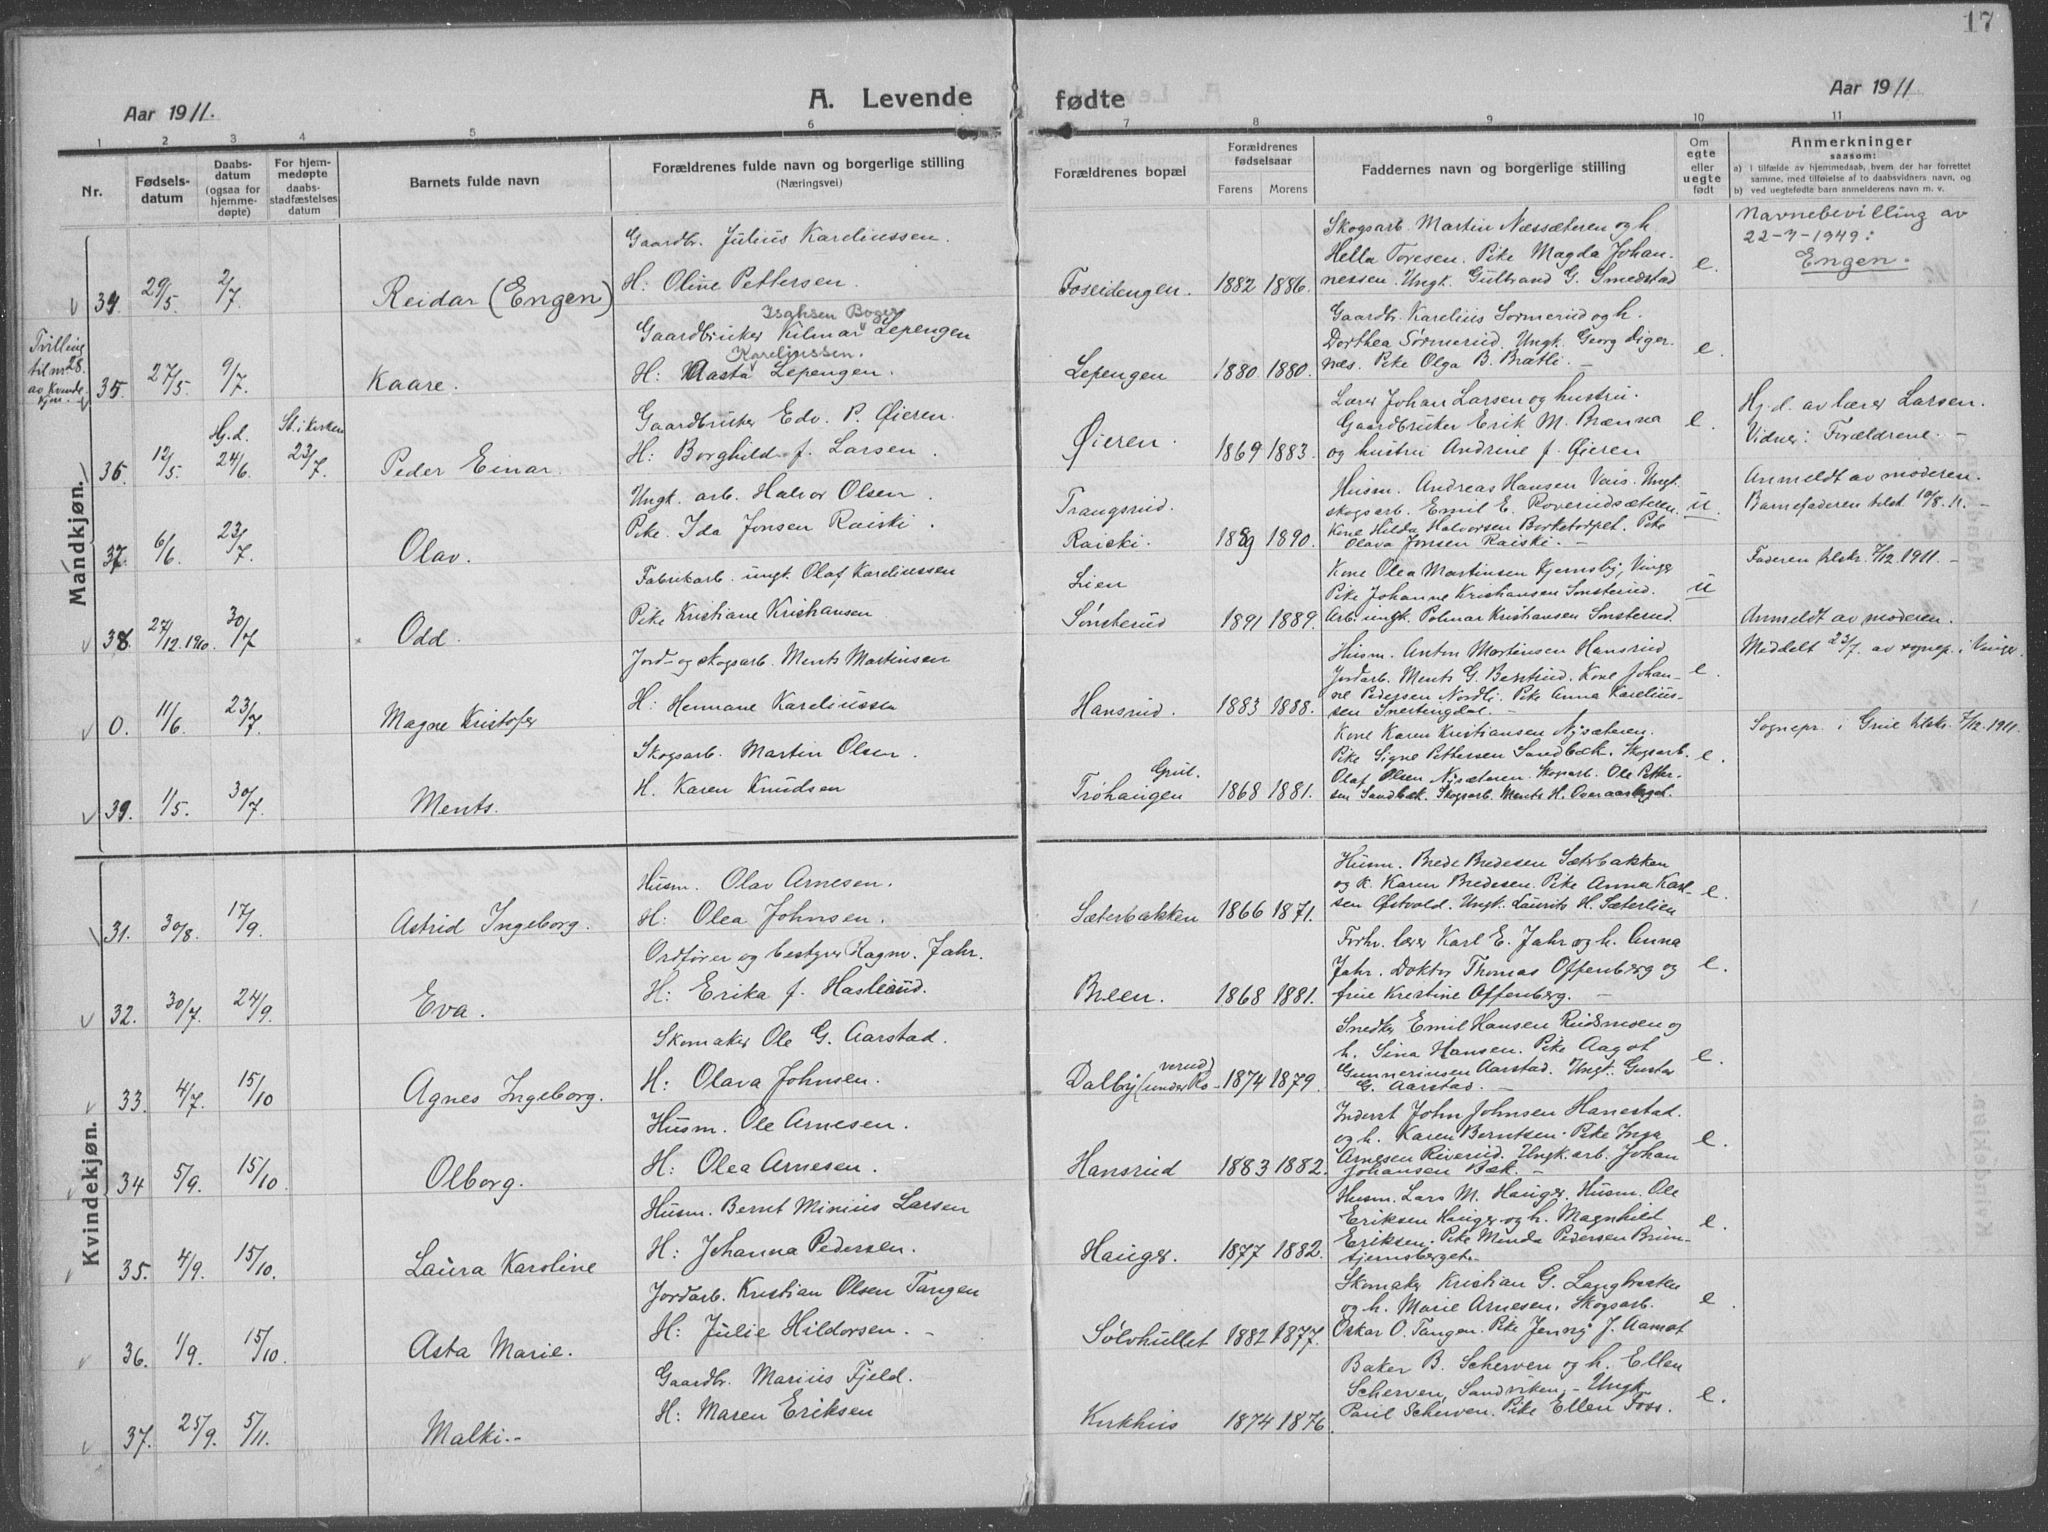 17
Aar 1911.
A. Levende
fødte
Aar 1911
1 2 3 4 5 6 7 8 9 10 11
Nr.
Fødsels-
datum
Daabs-
datum
(ogsaa for
hjemme-
døpte)
For hjem-
medøpte
daabs-
stadfæstelses
datum
Barnets fulde navn
Forældrenes fulde navn og borgerlige stilling
(Næringsvei)
Forældrenes bopæl
Forældrenes
fødselsaar
Farens Morens
Faddernes navn og borgerlige stilling
Om
egte
eller
uegte
født
Anmerkninger
saasom:
a) I tilfælde av hjemmedaab, hvem der har forrettet
samme, med tilføielse av to daabsvidners navn, og
b) ved uegtefødte barn anmelderens navn m. v.
Mandkjøn.
34 29/5 2/7 Reidar (Engen)
Gaardbr. Julius Kareliussen.
H: Olive Pettersen.
Foseidengen. 1882 1886.
Skogsarb. Martin Næssæteren og h.
Hella Toresen. Pike Magda Johan-
nessen. Ungk. Gulbrand G. Smedstad
e.
Navnebevilling av
22-7-1949:
Engen.
Tvilling
til nr 28.
av Kvinde-
kjøn.
35. 27/5. 9/7. Kaare.
Isaksen Boger
Gaardbruker Hilmar Lepengen
Kareliussen.
H: Aasta Lepengen.
Lepengen 1880 1880.
Gaardbr. Karelius Sørmerud og h.
Dorthea Sørmerud. Ungk. Georg Diger-
næs. Pike Olga B. Bratli.
e.
36. 12/5. Hj.d. 24/6. St. i kirken 23/7. Peder Einar.
Gaardbruker Edv. P. Øieren.
H: Borghild f. Larsen.
Øieren. 1869 1883.
Lærer Johan Larsen og hustru.
Gaardbruker Erik M. Brænna
og hustru Andrine f. Øieren
e.
Hj.d. av lærer Larsen.
Vidner: Forældrene. –
37. 6/6. 23/7. Olav.
Ungk. arb. Halvor Olsen.
Pike. Ida Jonsen Raiski.
Trangsrud.
Raiski. 1889 1890.
Husm. Andreas Hansen Vais. Ungk.
skogsarb. Emil E. Roverudsæteren.
Kone Hilda Halvorsen Borketorpet. Pike
Olava Jonsen Raiski. –
u.
Anmeldt av moderen.
Barnefaderen tilst. 10/8. 11.
38. 27/12. 1910. 30/7. Odd.
Fabrikarb. ungk. Olaf Kareliussen
Pike Kristiane Kristiansen
Lien
Sønsterud 1891 1889.
Kone Olea Martinsen Kjernsby, Vinger
Pike Johanne Kristiansen Sønsterud.
Arb. ungk. Polmar Kristiansen Sønsterud.
u
Faderen tilskr. 7/12 1911. –
Anmeldt av moderen.
0. 11/6. 23/7. Magne Kristofer
Jord- og skogsarb. Ments Martinsen
H: Hermane Kareliussen
Hansrud. 1883 1888.
Husm. Anton Martinsen Hansrud
Jordarb. Ments G. Berstud. Kone Johan-
ne Pedersen Nordli. Pike Anna Karelius-
sen Snertingdal. –
e.
Meddelt 23/7. av sognep. i Vinger.
39. 1/5. 30/7. Ments.
Skogsarb. Martin Olsen.
H. Karen Knudsen
Grue.
Trøhaugen 1868 1881.
Kone Karen Kristiansen Nysæteren.
Pike Signe Pettersen Sandbæk. Skogsarb.
Olaf Olsen Nysæteren. Skogsarb. Ole Petter-
sen Sandbæk. Skogsarb. Ments H. Overaarberget.
e.
Sognepr. i Grue tilskr. 7/12. 1911.
Kvindekjøn.
31. 30/8. 17/9. Astrid Ingeborg.
Husm. Olav Arnesen.
H: Olea Johnsen.
Sæterbakken 1866 1871.
Husm. Brede Bredesen Sæterbakken
og k. Karen Bredesen. Pike Anna Karl-
sen Østvold. Ungk. Laurits H. Sæterlien
e.
32. 30/7. 24/9. Eva.
Ordfører og bestyrer Ragnv. Jahr.
H: Erika f. Haslerud.
Breen. 1868 1881.
Forhv. lærer Karl E. Jahr og h. Anna
Jahr. Doktor Thomas Offenberg og
frue Kristine Offenberg. –
e.
33. 4/7. 15/10 Agnes Ingeborg.
Skomaker Ole G. Aarstad.
H: Olava Johnsen.
Dalby (under Ro-
verud) 1874 1879.
Snedker Emil Hansen Rudsmoen og
h. Sina Hansen. Pike Aagot
Gunnerinsen Aarstad. Ungk. Gustav
G. Aarstad. –
e.
34 5/9. 15/10. Olborg.
Husm. Ole Arnesen.
H: Olea Arnesen.
Hansrud 1883 1882.
Inderst John Johnsen Hanestad.
og h. Karen Berntsen. Pike Inga
Arnesen Riverud. Ungk. arb. Johan
Johansen Bæk. –
e.
35. 4/9. 15/10. Laura Karoline
Husm. Bernt Minius Larsen
H: Johanna Pedersen.
Hauger. 1877 1882.
Husm. Lars M. Hauger. Husm. Ole
Eriksen Hauger og h. Magnhild
Eriksen. Pike Minda Pedersen Brun-
tjernsberget.
e.
36. 1/9. 15/10. Asta Marie.
Jordarb. Kristian Olsen Tangen
H: Julie Hildorsen. –
Sølvhullet 1882 1877.
Skomaker Kristian G. Langbraaten
og h. Marie Arnesen. Skogsarb.
Oskar O. Tangen. Pike Jenny J. Aamot
e
37. 25/9. 5/11. Malki.–
Gaardbr. Marius Fjeld.
H: Maren Eriksen
Kirkhus 1874 1876.
Baker B. Scherven og h. Ellen
Scherven, Sandviken, – Ungk.
Paul Scherven. Pike Ellen Foss.
e.